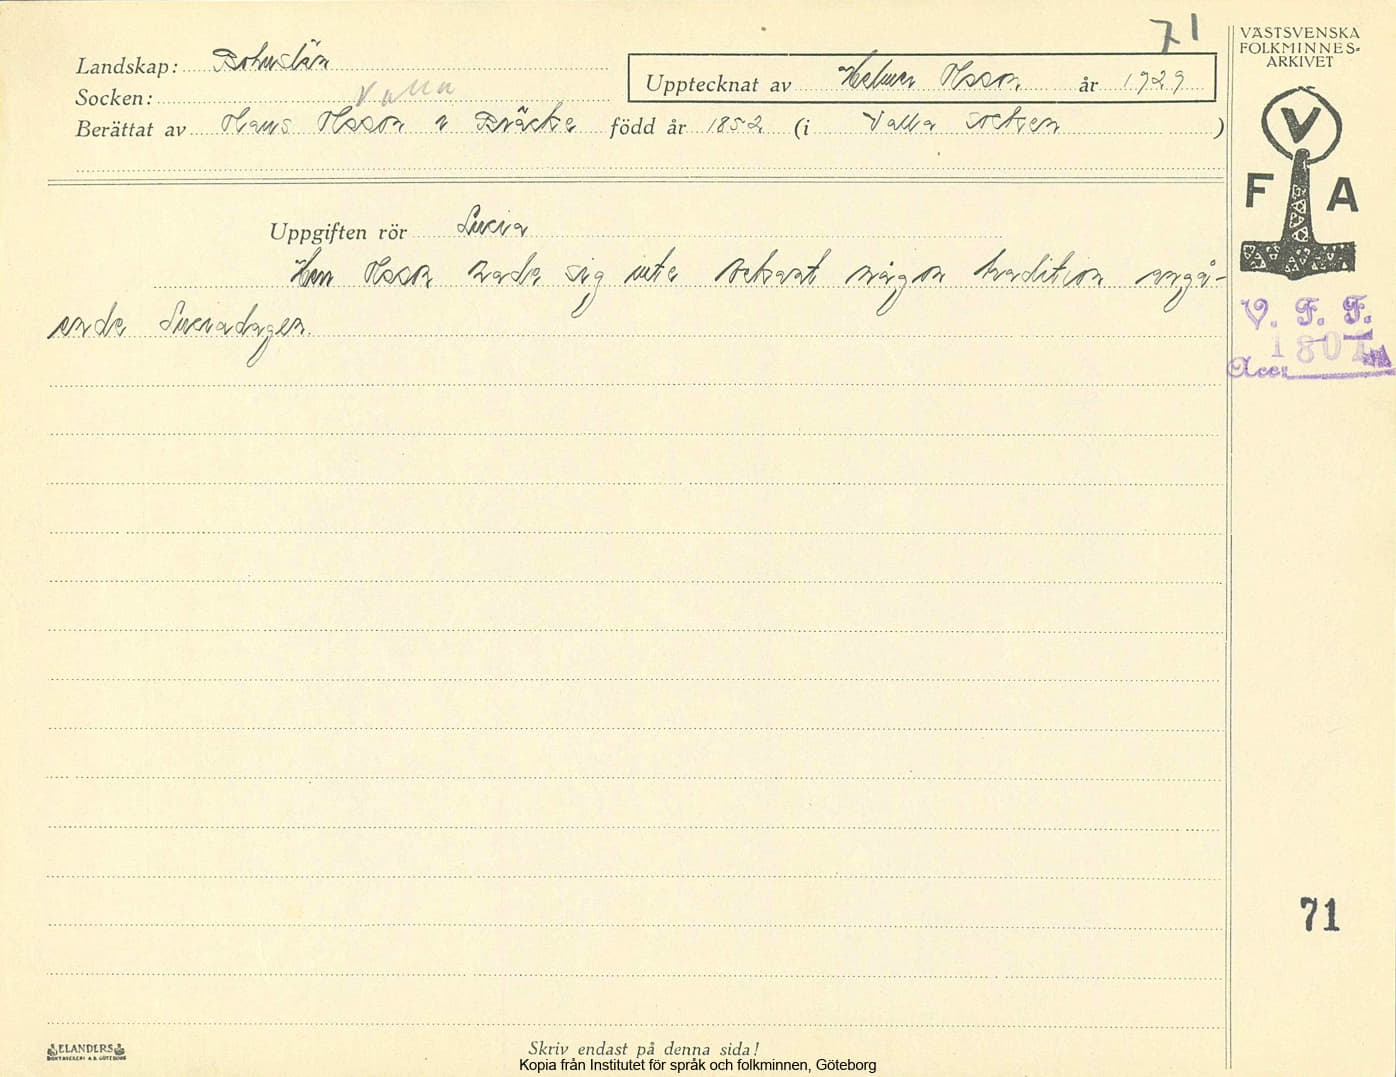 71
VÄSTSVENSKA
FOLKMINNES-
ARKIVET
Landskap: Bohuslän
Upptecknat av Helmer Olsson år 1929
Socken: Valla
Berättat av Hans Olsson i Bräcke född år 1852 (i Valla socken)
V
F A
Uppgiften rör Lucia
Herr Olsson hade sig inte bekant någon tradition angå-
ende Luciadagen.
V. F. F.
Acc: 1801
71
ELANDERS
BOKTRYCKERI A.B. GÖTEBORG
Skriv endast på denna sida!
Kopia från Institutet för språk och folkminnen, Göteborg